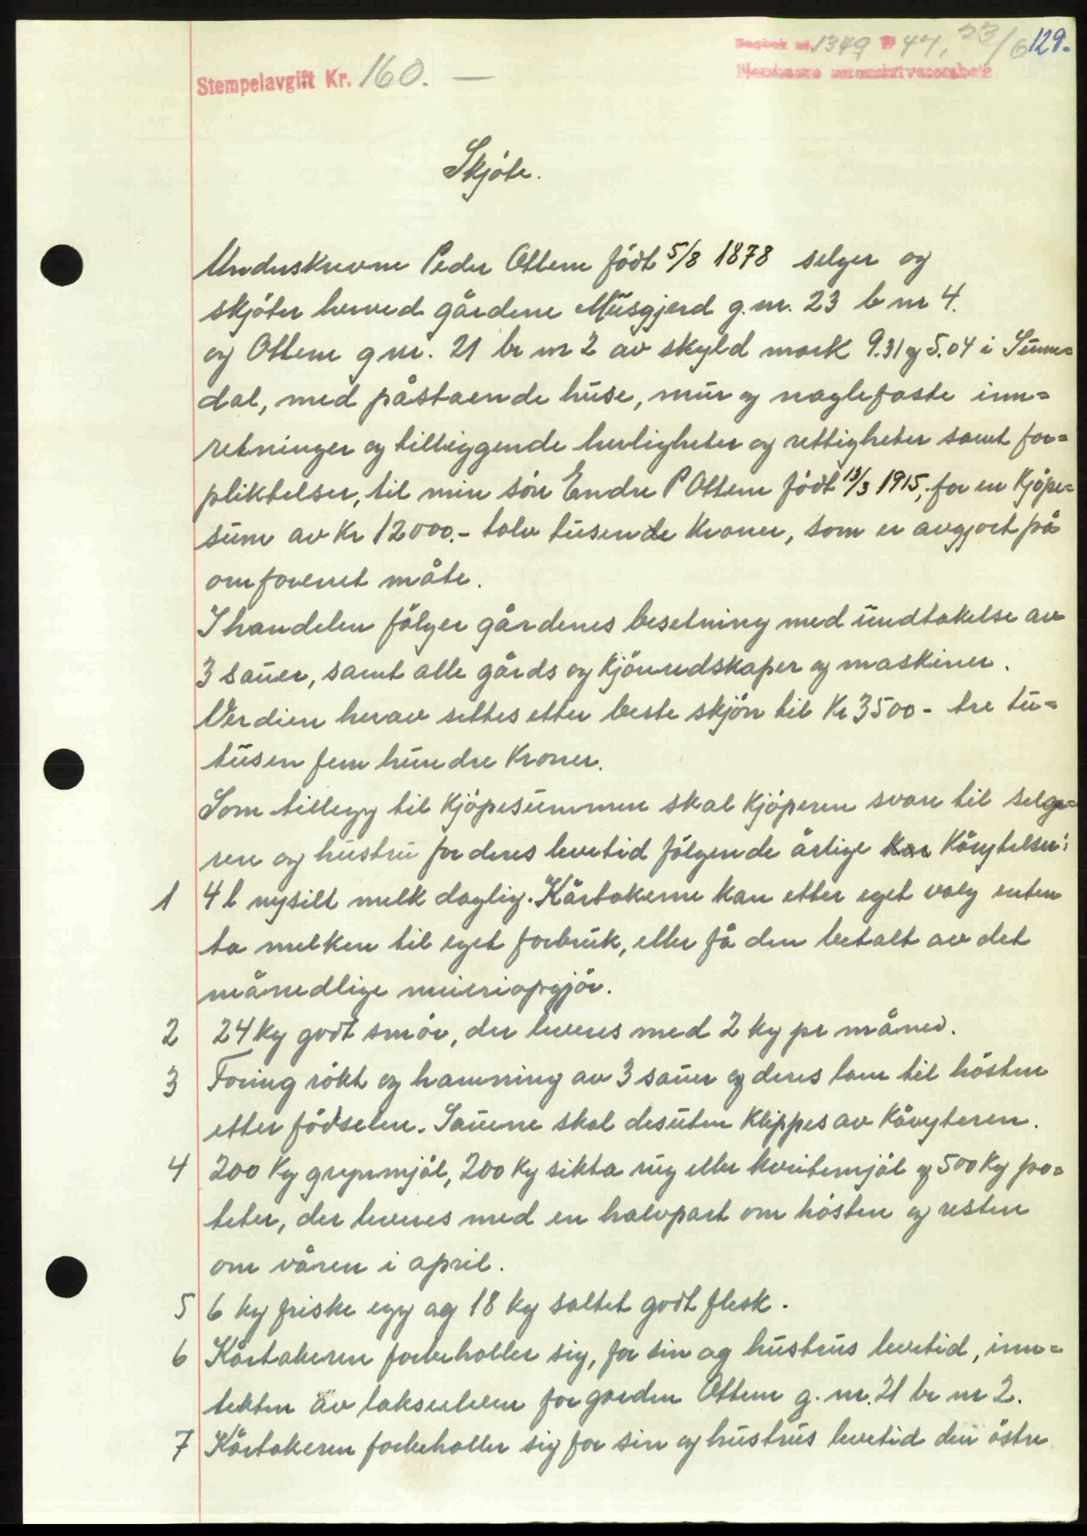 Dagbok nr. 1349 1947, 23/6 129.
Stempelavgift Kr. 160. —
Skjøte.
Underskrevne Peder Ottem født 5/8 1878 selger og
skjøter herved gårdene Musgjerd g.nr. 23 b nr 4.
og Ottem g nr. 21 br nr 2 av skyld mark 9.31 og 5.04 i Sunn=
dal, med påstaende huse, mur og naglefaste inn=
retninger og tilliggende herligheter og rettigheter samt for=
pliktelser, til min sön Endre P Ottem födt 13/3 1915, for en Kjöpe=
sum av Kr 12000.- tolv tusende Kroner, som er avgjort på
omforenet måte.
I handelen fölger gårdenes besetning med undtakelse av
3 sauer, samt alle gårds og Kjöreredskaper og maskiner.
Verdien herav settes etter beste skjön til Kr 3500- tre tu=
tusen fem hundre Kroner.
Som tillegg til Kjöpesummen skal Kjöperen svare til selge=
ren og hustru for deres levetid fölgende årlige Kårytelser:
1 4 l nysilt melk daglig. Kårtakerne kan etter eget valg enten
ta melken til eget forbruk, eller få den betalt av det
månedlige meieriopgjör.
2 24 kg godt smör, der leveres med 2 kg pr måned.
3 Foring rökt og hamning av 3 sauer og deres lam til hösten
etter födselen. Sauene skal desuten Klippes av Kåryteren.
4 200 Kg grynmjöl, 200 Kg sikta rug eller hveitemjöl og 500 Kg po=
teter, der leveres med en halvpart om hösten og resten
om våren i april.
5 6 kg friske egg ag 18 kg saltet godt flesk.
6 Kårtakeren forbeholler sig, for sin og hustrus levetid, inn=
tekten av lakseelven for garden Ottem g. nr. 21 br nr 2.
7 Kårtakeren forbeholler sig for sin og hustrus levetid den östre